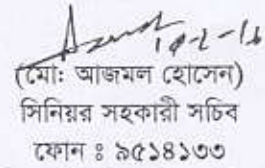 (মো: আজমল হোসেন)
সিনিয়র সহকারী সচিব
ফোন ঃ ৯৫১৪১৩৩